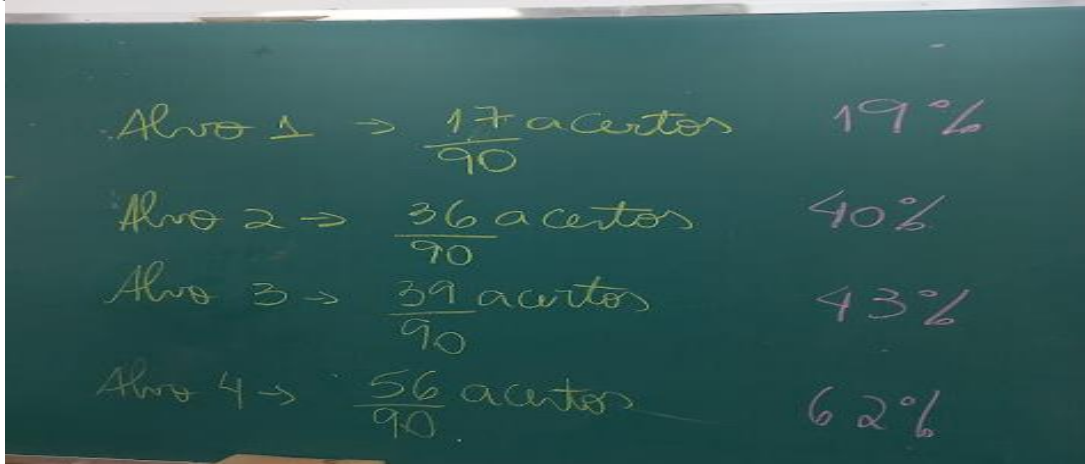 Alvo 1 → 17/90 acertos 19%
Alvo 2 → 36/90 acertos 40%
Alvo 3 → 39/90 acertos 43%
Alvo 4 → 56/90 acertos 62%